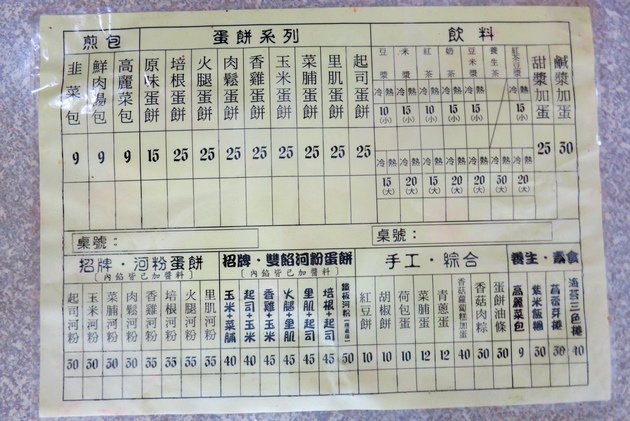 煎包
韭菜包 9
鮮肉湯包 9
高麗菜包 9
蛋餅系列
原味蛋餅 15
培根蛋餅 25
火腿蛋餅 25
肉鬆蛋餅 25
香雞蛋餅 25
玉米蛋餅 25
菜脯蛋餅 25
里肌蛋餅 25
起司蛋餅 25
飲料
豆漿 冷 熱 10(小) 冷 熱 15(大)
米漿 冷 熱 15(小) 冷 熱 20(大)
紅茶 冷 熱 10(小) 冷 熱 15(大)
奶茶 冷 熱 15(小) 冷 熱 20(大)
豆米漿 冷 熱 15(小) 冷 熱 20(大)
養生茶 冷 熱 30(大)
紅茶豆漿 冷 熱 15(小) 冷 熱 20(大)
甜漿加蛋 25
鹹漿加蛋 30
桌號：
桌號：
招牌·河粉蛋餅
〔內餡皆已加醬料〕
起司河粉 30
玉米河粉 30
菜脯河粉 30
肉鬆河粉 30
香雞河粉 35
培根河粉 35
火腿河粉 35
里肌河粉 35
招牌·雙餡河粉蛋餅
〔內餡皆已加醬料〕
玉米+菜脯 40
起司+玉米 40
香雞+玉米 45
火腿+里肌 45
里肌+起司 45
培根+起司 45
鐵板河粉 50
手工·綜合
紅豆餅 10
胡椒餅 10
荷包蛋 10
菜脯蛋 12
青蔥蛋 12
香菇蘿蔔糕加蛋 40
香菇肉粽 30
蛋餅油條 30
養生·素食
高麗菜包 9
紫米飯糰 30
苜蓿芽捲 30
海苔三色捲 40